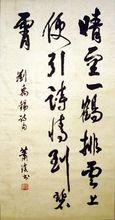 晴空一鶴排雲上
便引詩情到碧
霄
劉禹錫詩句
蕭 書